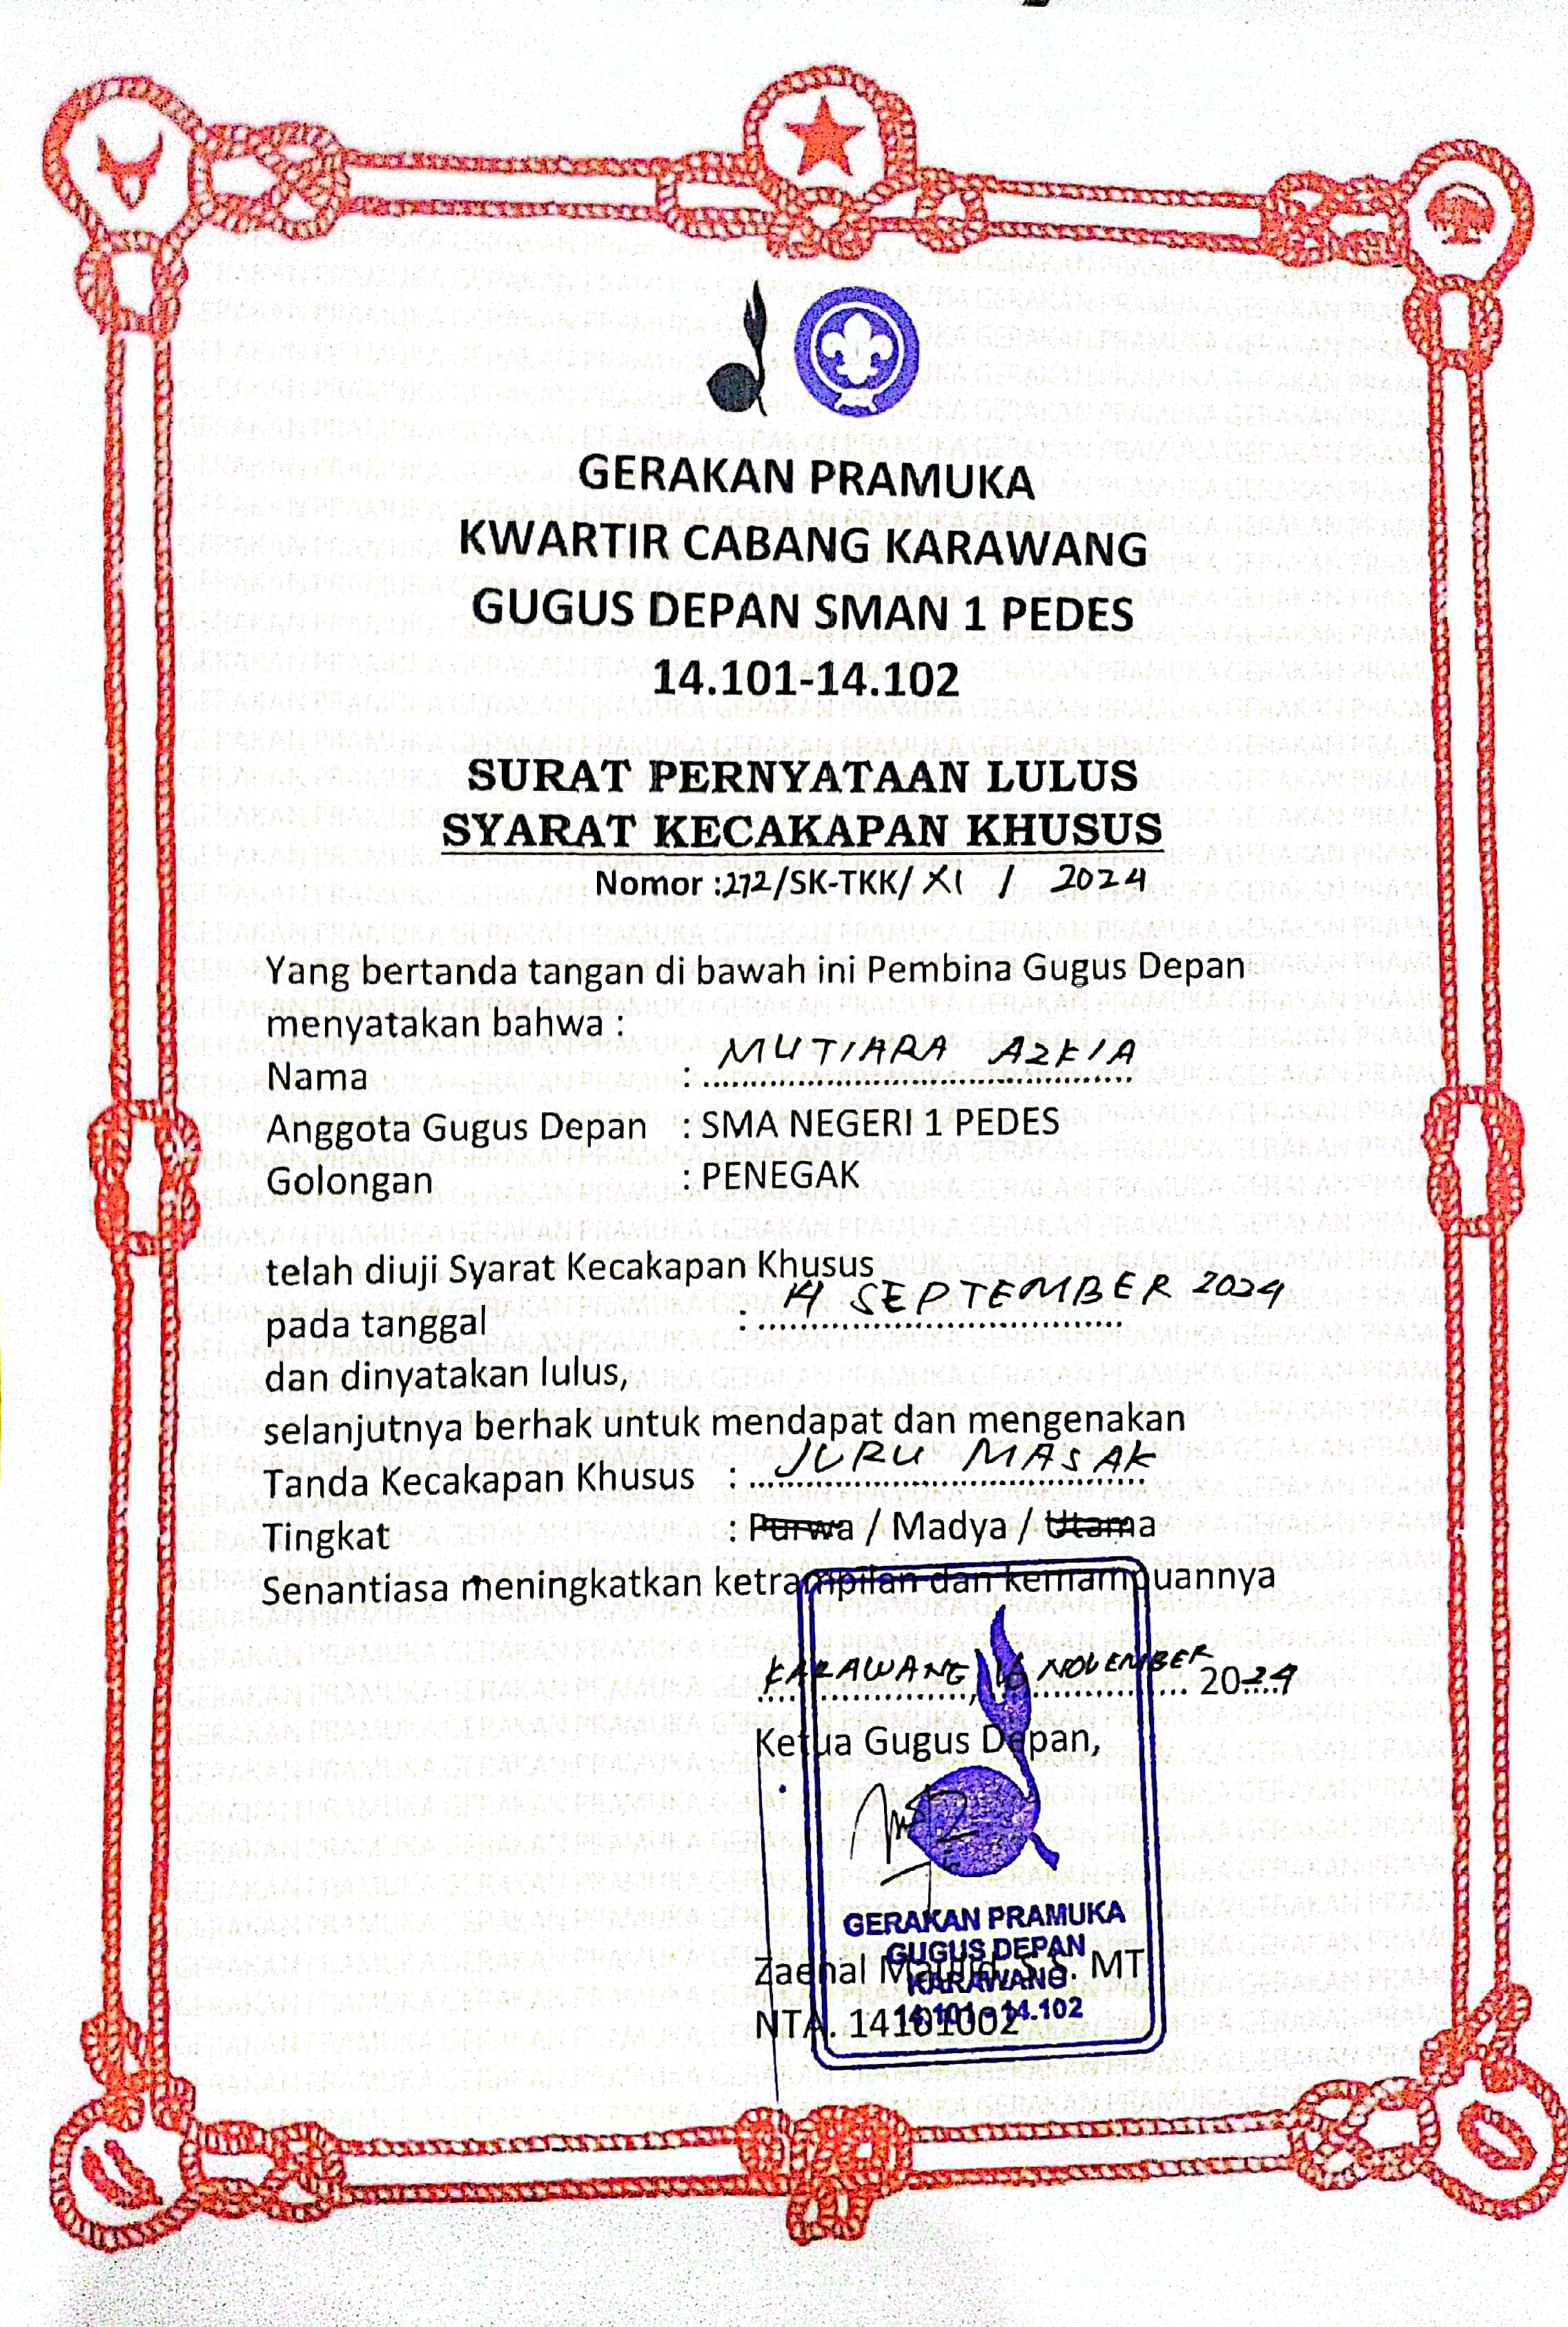 GERAKAN PRAMUKA
KWARTIR CABANG KARAWANG
GUGUS DEPAN SMAN 1 PEDES
14.101-14.102
SURAT PERNYATAAN LULUS
SYARAT KECAKAPAN KHUSUS
Nomor :272/SK-TKK/ XI / 2024
Yang bertanda tangan di bawah ini Pembina Gugus Depan
menyatakan bahwa :
Nama : MUTIARA AZKIA
Anggota Gugus Depan : SMA NEGERI 1 PEDES
Golongan : PENEGAK
telah diuji Syarat Kecakapan Khusus
pada tanggal : 14 SEPTEMBER 2024
dan dinyatakan lulus,
selanjutnya berhak untuk mendapat dan mengenakan
Tanda Kecakapan Khusus : JURU MASAK
Tingkat : Purwa / Madya / Utama
Senantiasa meningkatkan ketrampilan dan kemampuannya
KARAWANG, 16 NOVEMBER 2024
Ketua Gugus Depan,
GERAKAN PRAMUKA
GUGUS DEPAN
KARAWANG
14.101 - 14.102
Zaenal S.S. MT
NTA. 14101002